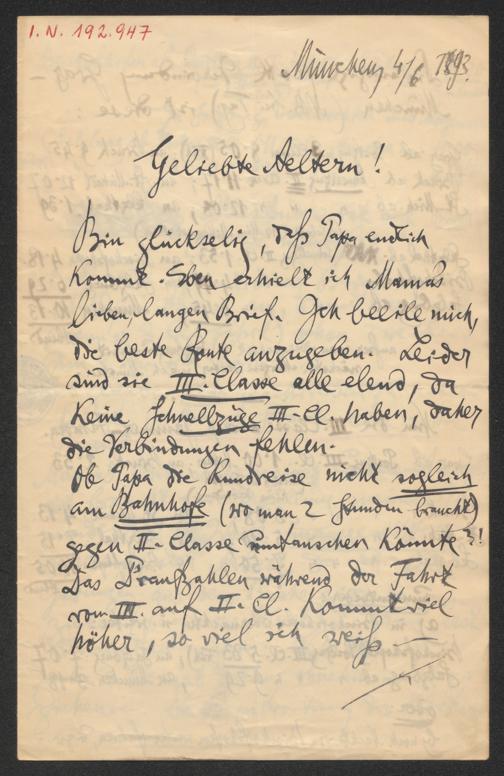 I. N. 192.947
München, 4/6 1893.
Geliebte Aeltern!
Bin glückselig, daß Papa endlich
kommt. Eben erhielt ich Mama's
lieben langen Brief. Ich beeile mich,
die beste Route anzugeben. Leider
sind sie III. Classe alle elend, da
keine Schnellzüge III. Cl. haben, daher
die Verbindungen fehlen.
Ob Papa die Rundreise nicht sogleich
am Bahnhofe (wo man 2 Stunden braucht)
gegen II. Classe umtauschen könnte?!
Das Draufzahlen während der Fahrt
von III. auf II. Cl. kommt viel
höher, so viel ich weiß